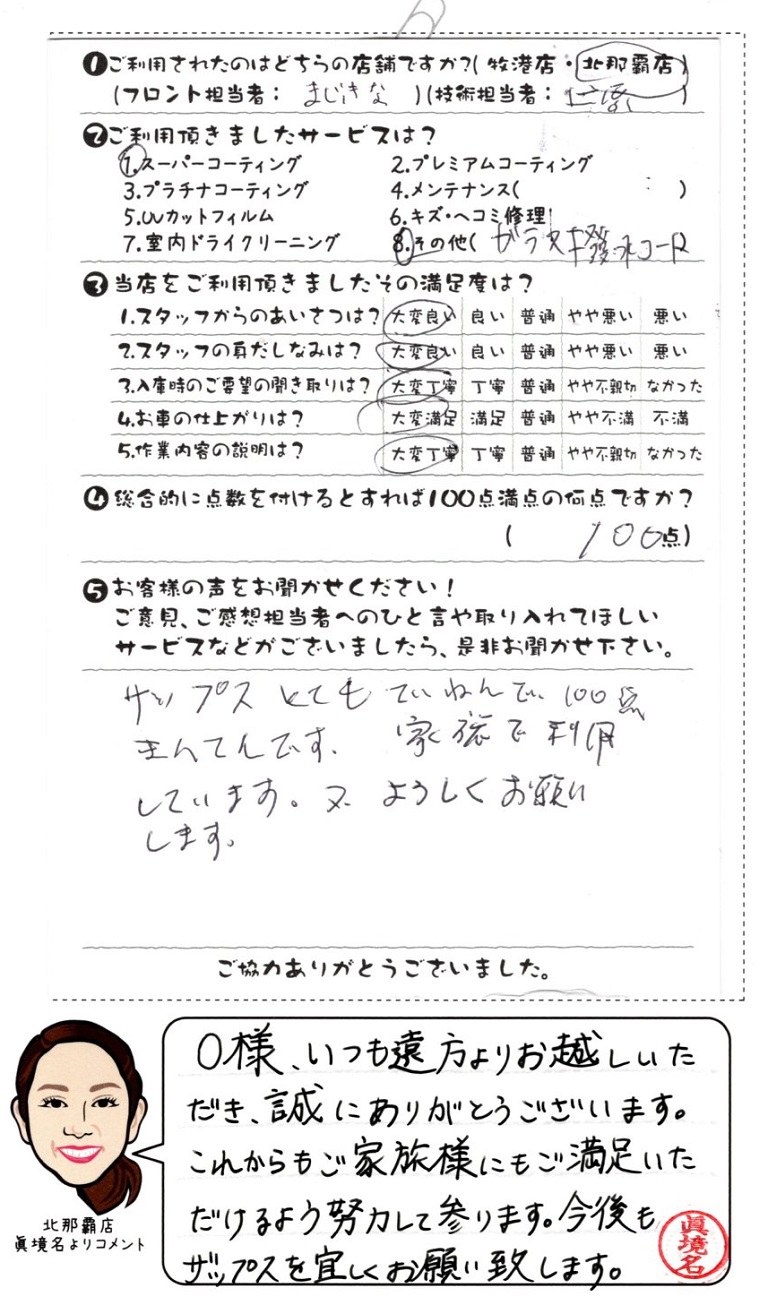 ❶ご利用されたのはどちらの店舗ですか?(牧港店・北那覇店)
(フロント担当者: まじきな )(技術担当者: )
❷ご利用頂きましたサービスは?
1.スーパーコーティング 2.プレミアムコーティング
3.プラチナコーティング 4.メンテナンス( )
5.UVカットフィルム 6.キズ・ヘコミ修理
7.室内ドライクリーニング 8.その他( ガラス 發水コート
❸当店をご利用頂きましたその満足度は?
1.スタッフからのあいさつは? 大変良い 良い 普通 やや悪い 悪い
2.スタッフの身だしなみは? 大変良い 良い 普通 やや悪い 悪い
3.入庫時のご要望の聞き取りは? 大変丁寧 丁寧 普通 やや不親切 なかった
4.お車の仕上がりは? 大変満足 満足 普通 やや不満 不満
5.作業内容の説明は? 大変丁寧 丁寧 普通 やや不親切 なかった
❹総合的に点数を付けるとすれば100点満点の何点ですか?
( 100点)
❺お客様の声をお聞かせください!
ご意見、ご感想担当者へのひと言や取り入れてほしい
サービスなどがございましたら、是非お聞かせ下さい。
ザップス とても ていねんで、100点
まんてんです、 家族で利用
しています。又 ようしくお願い
します。
ご協力ありがとうございました。
O様、いつも遠方よりお越しいた
だき、誠にありがとうございます。
これからもご家族様にもご満足いた
だけるよう努力して参ります。今後も
ザップスを宜しくお願い致します。
眞境名
北那覇店
眞境名よりコメント